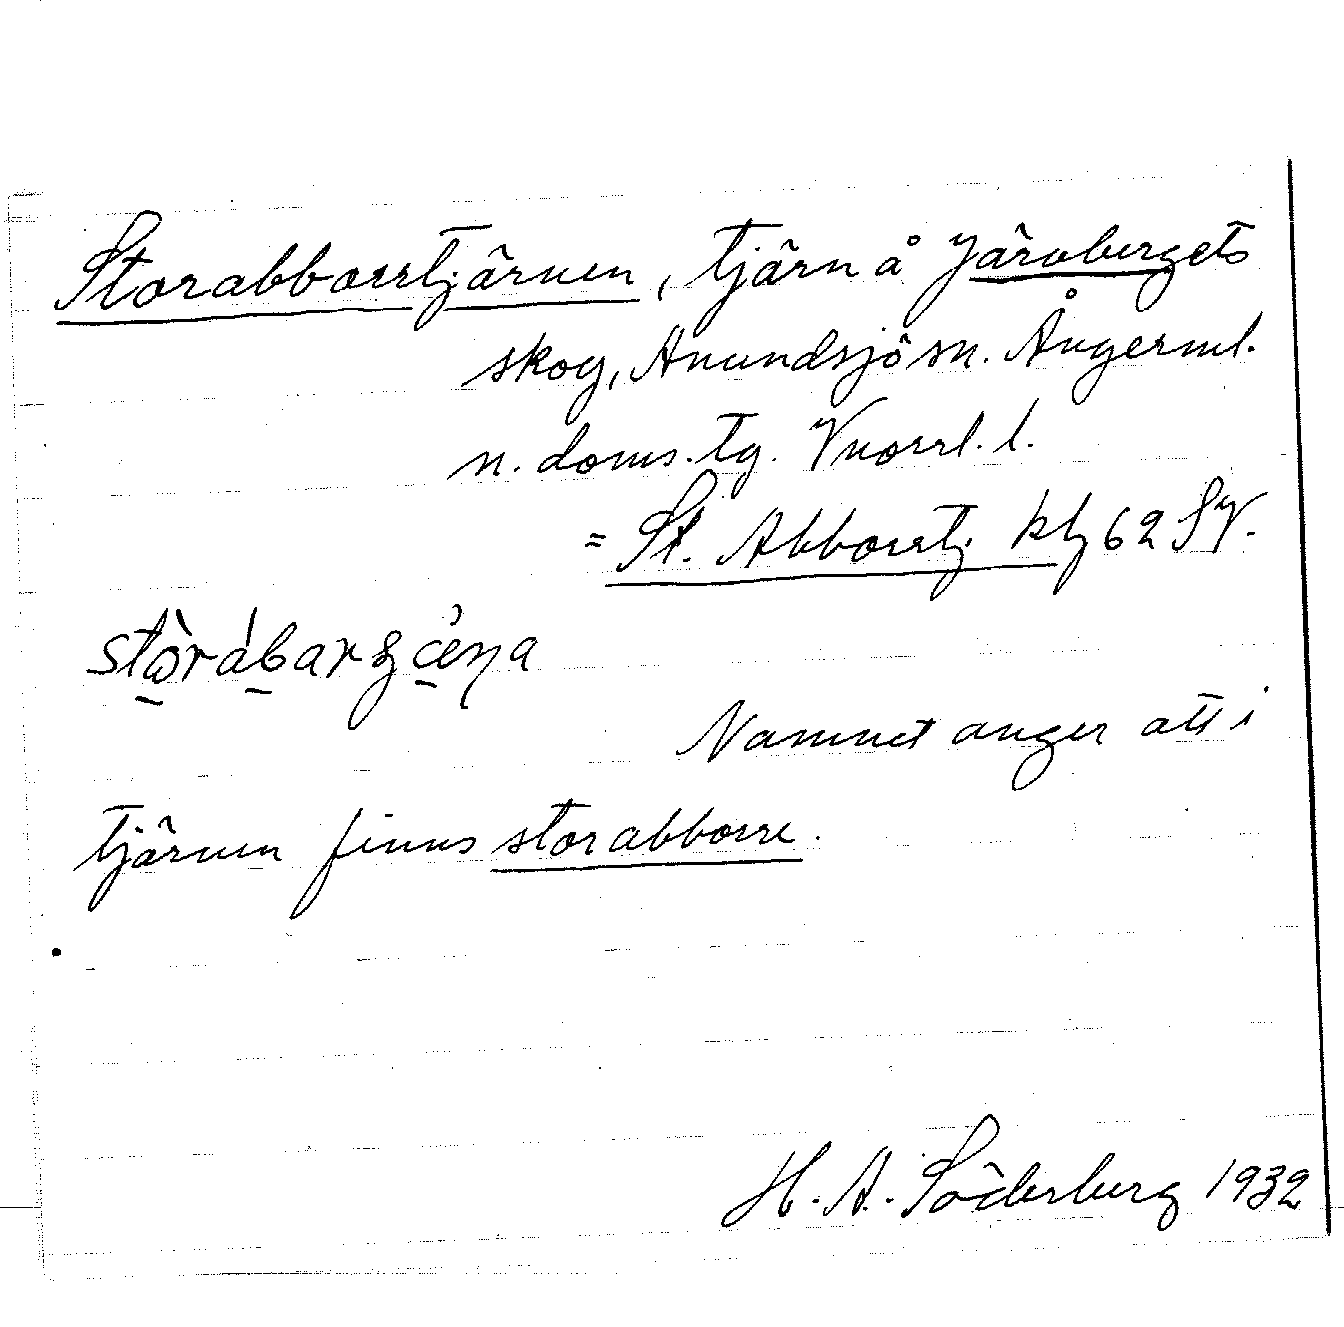 Storabborrtjärnen, tjärn å Järvbergets
skog, Anundsjö sn. Ångerml.
n. doms. tg.
= St. Abborrtj. kbl 62 SV.
Namnet anger att i
tjärnen finns storabborre.
H. A. Söderberg 1932